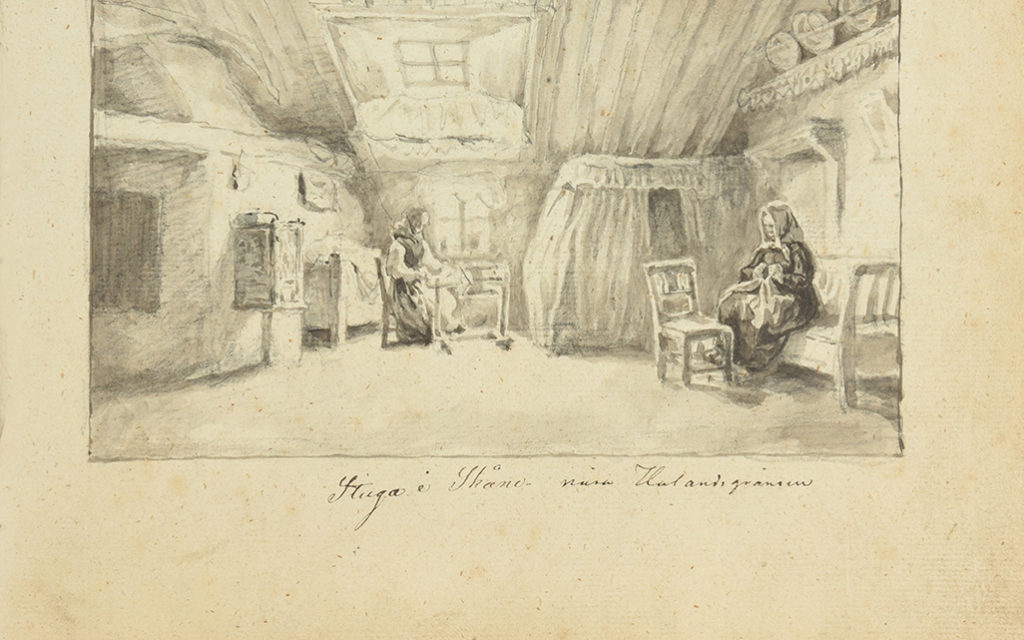 Stuga i Skåne nära Hallandsgränsen